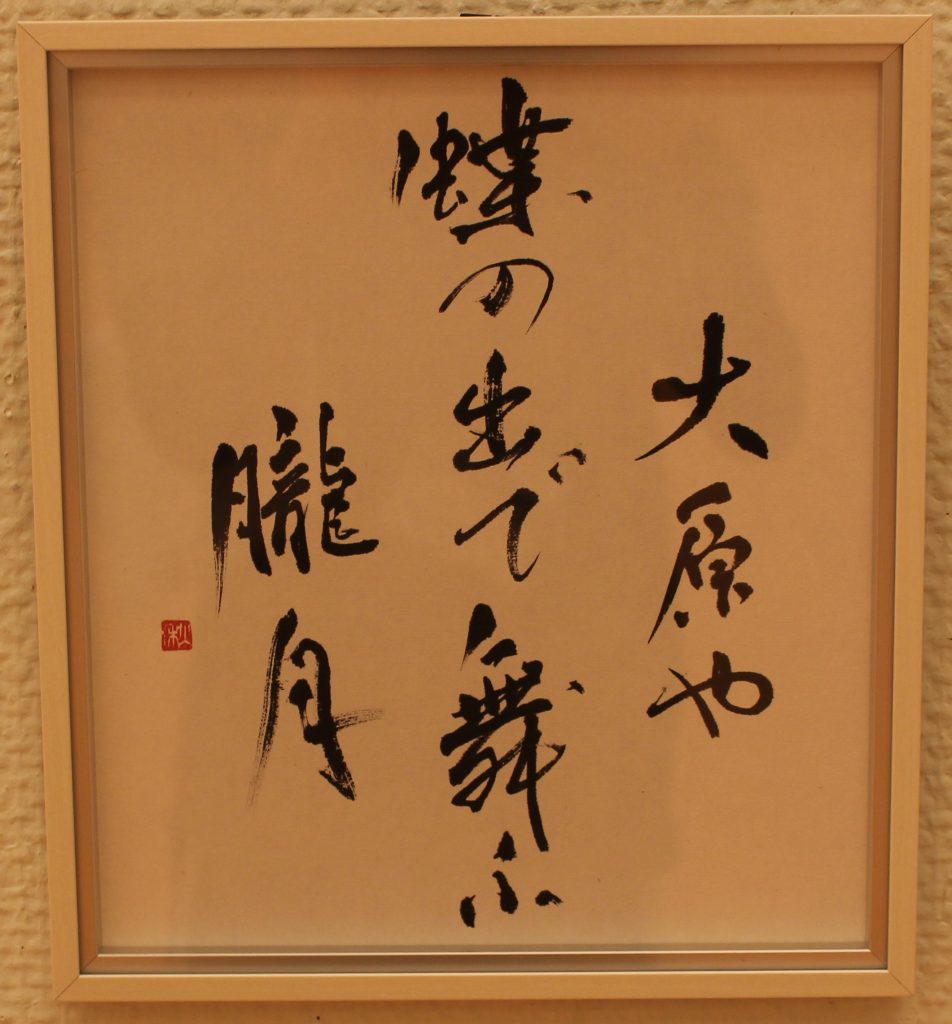 大原や
蝶の出で舞ふ
朧月